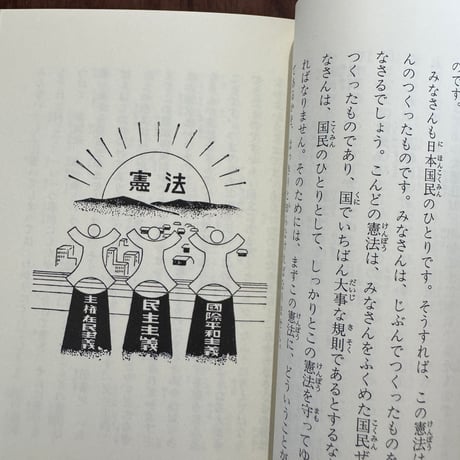 のです。
にほんこくみん けんぽう
みなさんも日本国民のひとりです。そうすれば、この憲法は
んのつくったものです。みなさんは、じぶんでつくったものを
けんぽう こくみん
なさるでしょう。こんどの憲法は、みなさんをふくめた国民ぜ
くに だいじ きそく
つくったものであり、国でいちばん大事な規則であるとするな
こくみん けんぽう まも
なさんは、国民のひとりとして、しっかりとこの憲法を守ってゆ
けんぽう
ればなりません。そのためには、まずこの憲法に、どういうことが
憲法
国際平和主義
民主主義
主権在民主義